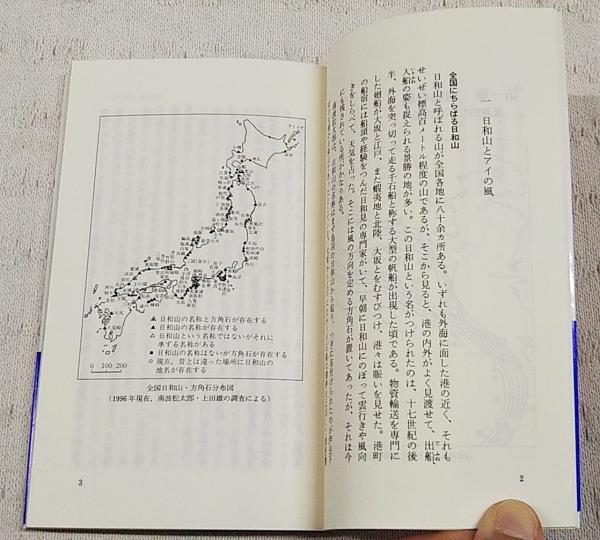 一 日和山とアイの風
全国にちらばる日和山
日和山と呼ばれる山が全国各地に八十余ヵ所ある。いずれも外海に面した港の近く、それも
せいぜい標高百メートル程度の山であるが、そこから見ると、港の内外がよく見渡せて、出船
入船の姿も捉えられる景勝の地が多い。この日和山という名がつけられたのは、十七世紀の後
半、外海を突っ切って走る千石船と称する大型の帆船が出現した頃である。物資輸送を専門に
した廻船が大坂と江戸、また蝦夷地と北陸、大坂とをむすびつけ、港々は賑いを見せた。港町
の船宿には船頭や経験をつんだ日和見の専門家がいて、早朝に日和山にのぼって雲行きや風向
きをしらべて、天気を占った。そこには風の方向を定める方角石が置いてあったが、それは今
にも残されている所がかなりある。
2
日和山の名称と方角石が存在する
▲ 日和山の名称が存在する
△ 日和山という名称ではないがそれに
準ずる名称がある
■ 日和山の名称はないが方角石が存在する
○ 現在，昔とは違った場所に日和山の
地名が存在する
0 100 200
全国日和山・方角石分布図
(1996年現在，南波松太郎・上田雄の調査による)
3